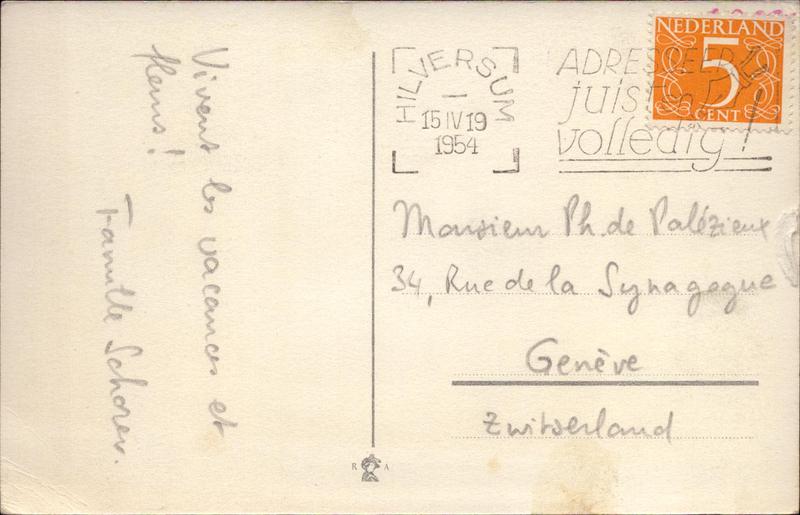 Vivent les vacances et
fleurs!
Famille Schorer.
HILVERSUM
15 IV 19
1954
ADRESSEER
juist en
volledig!
NEDERLAND
5
CENT
Monsieur Ph. de Palézieux
34, Rue de la Synagogue
Genève
Zwitserland
R A